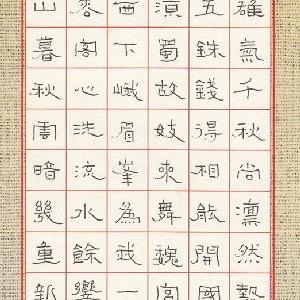 雄氣千秋尚凜然勢
五銖錢得相能開國
涼蜀故妓來舞魏宮
西下峨眉峯為我一
松客心洗流水餘響
山暮秋雲暗幾重新